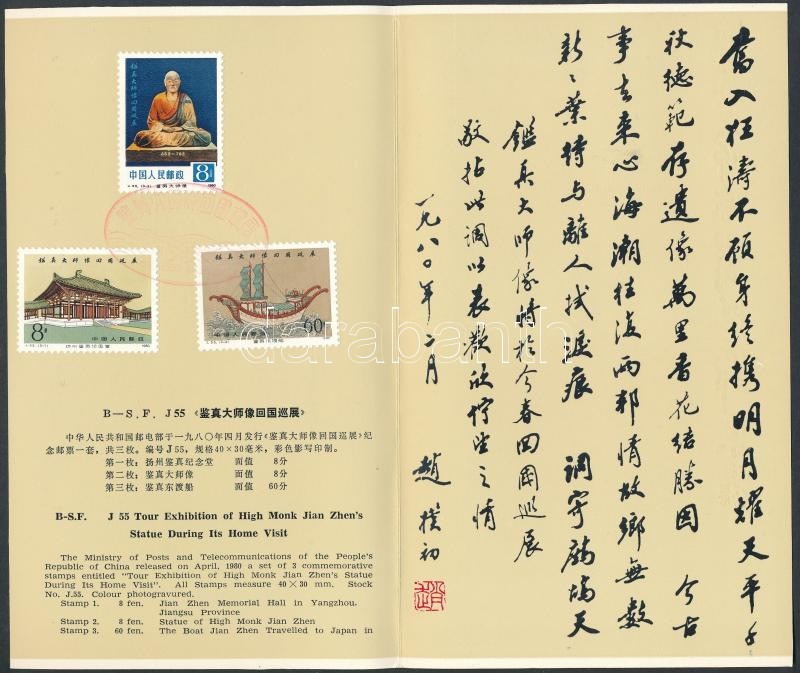 鉴真大师像回国巡展
688—763
中国人民邮政 8分
J.55. (3-2) 鉴真大师像 1980
鉴真大师像回国巡展
8分 中国人民邮政
J.55. (3-1) 扬州鉴真纪念堂 1980
鉴真大师像回国巡展
中国人民邮政 60分
J.55. (3-3) 鉴真东渡船 1980
B—S.F. J55 《鉴真大师像回国巡展》
中华人民共和国邮电部于一九八〇年四月发行《鉴真大师像回国巡展》纪
念邮票一套，共三枚。编号J55，规格40×30毫米，彩色影写印制。
第一枚：扬州鉴真纪念堂 面值 8分
第二枚：鉴真大师像 面值 8分
第三枚：鉴真东渡船 面值 60分
B-S.F. J 55 Tour Exhibition of High Monk Jian Zhen's
Statue During Its Home Visit
The Ministry of Posts and Telecommunications of the People's
Republic of China released on April, 1980 a set of 3 commemorative
stamps entitled "Tour Exhibition of High Monk Jian Zhen's Statue
During Its Home Visit". All Stamps measure 40×30 mm. Stock
No. J.55. Colour photogravured.
Stamp 1. 8 fen. Jian Zhen Memorial Hall in Yangzhou,
Jiangsu Province
Stamp 2. 8 fen. Statue of High Monk Jian Zhen
Stamp 3. 60 fen. The Boat Jian Zhen Travelled to Japan in
奮入狂濤不顧身終携明月耀天平千
秋德範存遺像萬里香花結勝因 今古
事去来心海潮往復兩邦情故鄉無數
新新葉特与離人拭淚痕 調寄鷓鴣天
鑑真大师像将於今春回國巡展
敬拈此調以表歡欣
之情
一九八〇年二月 趙樸初
趙
darabanth.com